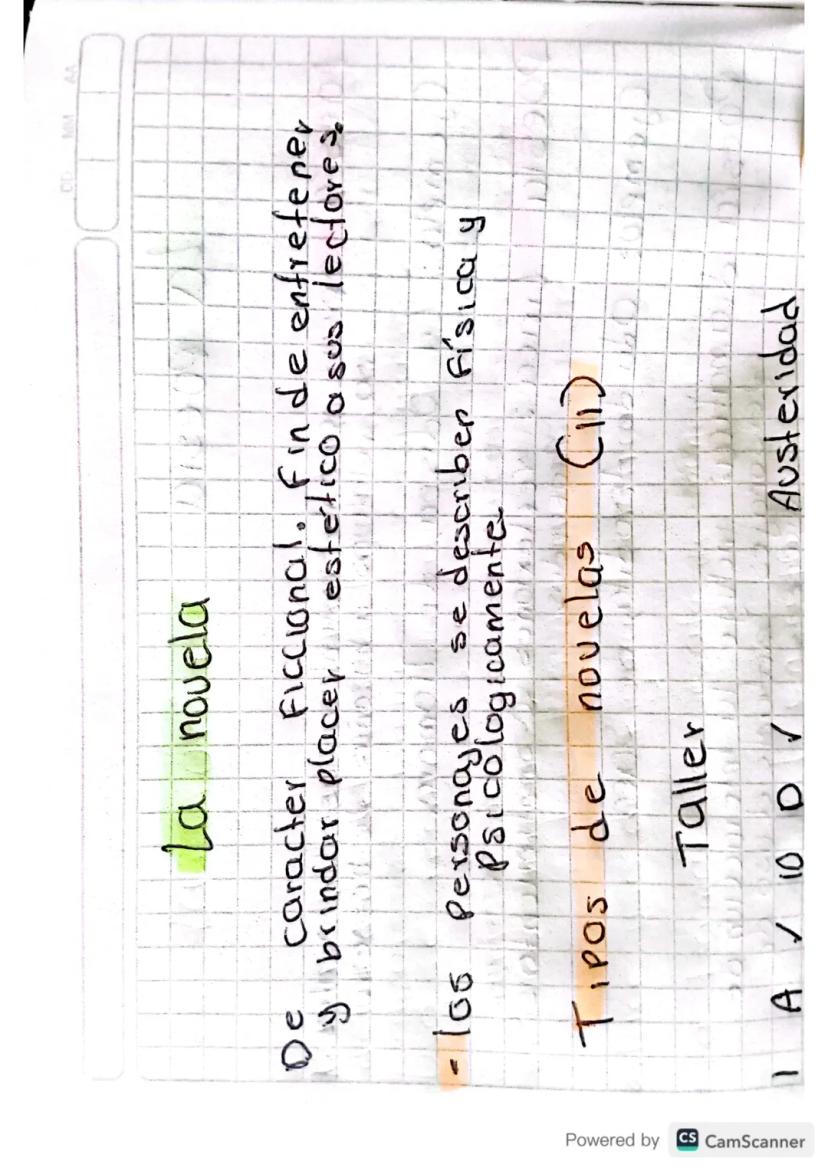 La novela
De caracter Ficcional. Fin de entretener
y brindar placer estético a sus lectores.
- los personajes se describen Física y
Psicologicamente
Tipos de novelas (11)
Taller
1 A ✓ 10 D ✓ Austeridad
DD MM AA
Powered by CS CamScanner